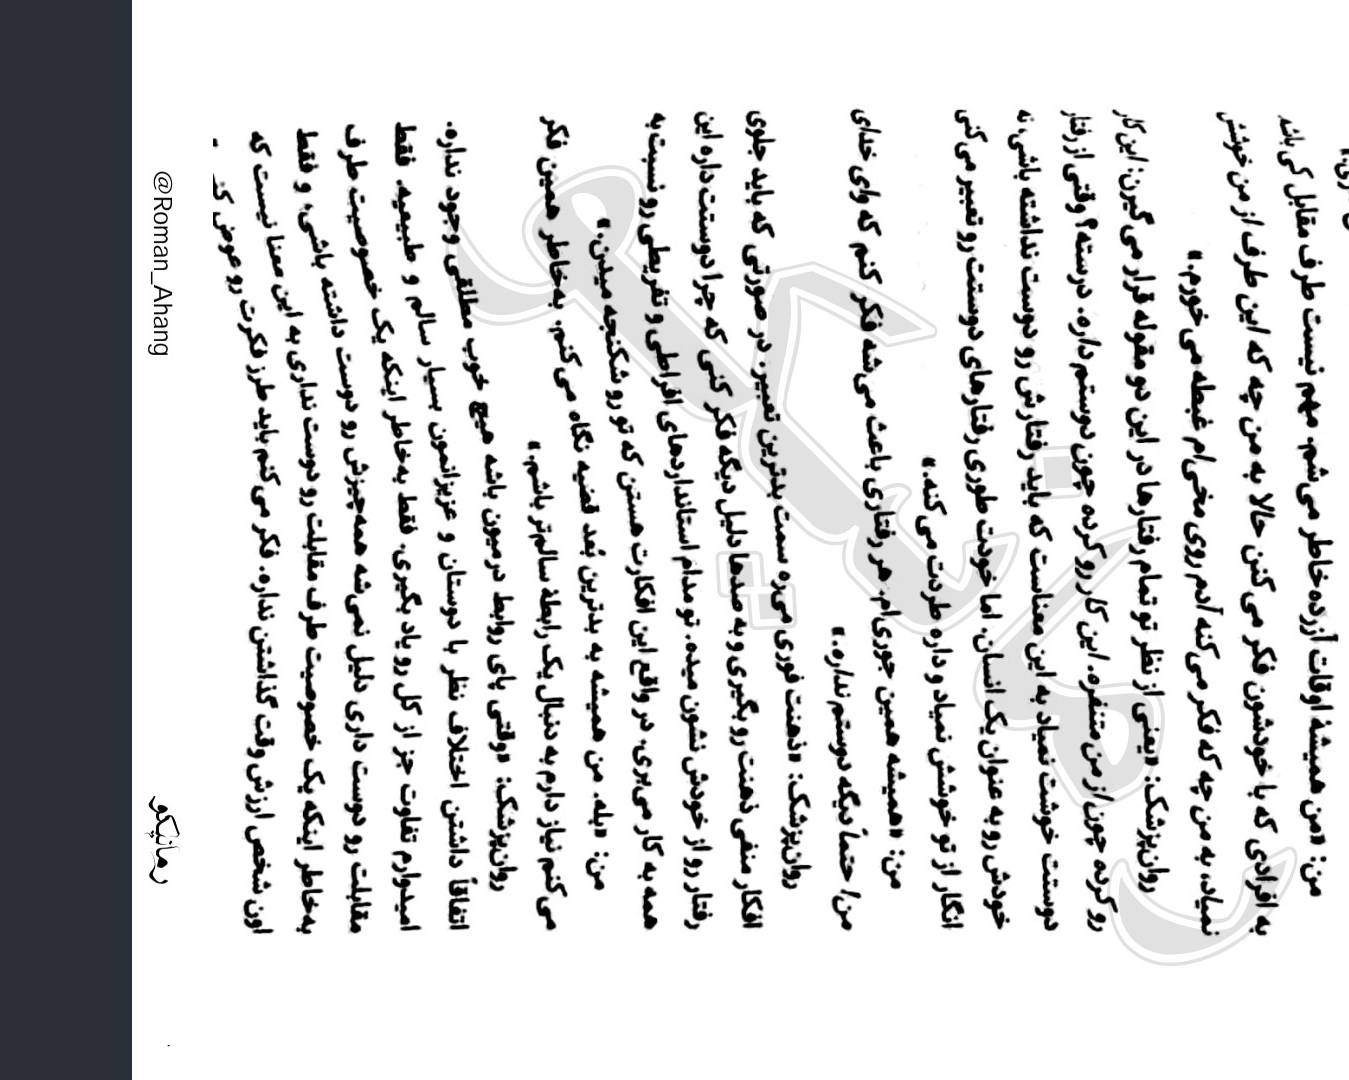 من: «من همیشهٔ اوقات آزرده‌خاطر می‌شم. مهم نیست طرف مقابل کی باشه
به افرادی که با خودشون فکر می‌کنن حالا به من چه که این طرف از من خوشش
نمیاد، به من چه که فکر می‌کنه آدم روی مخی‌ام غبطه می‌خورم.»
روان‌پزشک: «یعنی از نظر تو تمام رفتارها در این دو مقوله قرار می‌گیرن: این کار
رو کرده چون از من متنفره، این کار رو کرده چون دوستم داره. درسته؟ وقتی از رفتار
دوستت خوشت نمیاد به این معناست که باید رفتارش رو دوست نداشته باشی، نه
خودش رو به عنوان یک انسان. اما خودت طوری رفتارهای دوستت رو تعبیر می‌کنی
انگار از تو خوشش نمیاد و داره طردت می‌کنه.»
من: «همیشه همین جوری‌ام. هر رفتاری باعث می‌شه فکر کنم که وای خدای
من! حتماً دیگه دوستم نداره.»
روان‌پزشک: «ذهنت فوری می‌ره سمت بدترین تعبیر. در صورتی که باید جلوی
افکار منفی ذهنت رو بگیری و به صدها دلیل دیگه فکر کنی که چرا دوستت داره این
رفتار رو از خودش نشون میده. تو مدام استانداردهای افراطی و تفریطی رو نسبت به
همه به کار می‌بری. در واقع این افکارت هستن که تو رو شکنجه میدن.»
من: «بله. من همیشه به بدترین بُعد قضیه نگاه می‌کنم. به‌خاطر همین فکر
می‌کنم نیاز دارم به دنبال یک رابطهٔ سالم‌تر باشم.»
روان‌پزشک: «وقتی پای روابط درمیون باشه هیچ خوب مطلقی وجود نداره.
اتفاقاً داشتن اختلاف نظر با دوستان و عزیزانمون بسیار سالم و طبیعیه. فقط
امیدوارم تفاوت جز از کل رو یاد بگیری. فقط به‌خاطر اینکه یک خصوصیت طرف
مقابلت رو دوست داری دلیل نمی‌شه همه‌چیزش رو دوست داشته باشی، و فقط
به‌خاطر اینکه یک خصوصیت طرف مقابلت رو دوست نداری به این معنا نیست که
اون شخص ارزش وقت گذاشتن نداره. فکر می‌کنم باید طرز فکرت رو عوض
رمانیکو
@Roman_Ahang